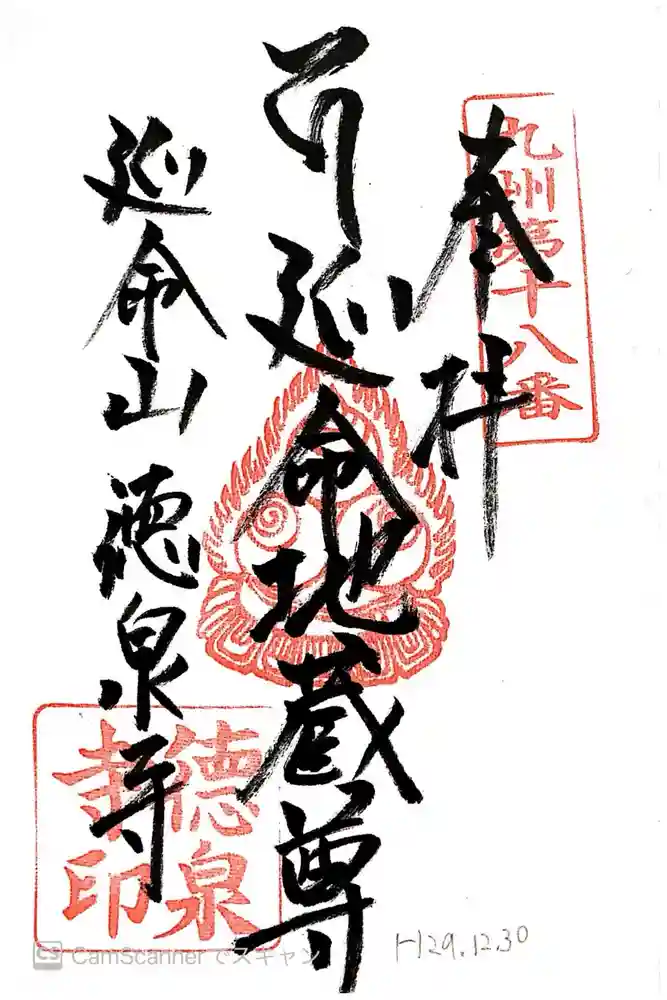 九州第十八番
奉拝
延命地蔵尊
延命山 徳泉寺
徳泉
寺印
H29.12.30
CS CamScanner でスキャン